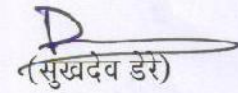 (सुखदेव डेरे)